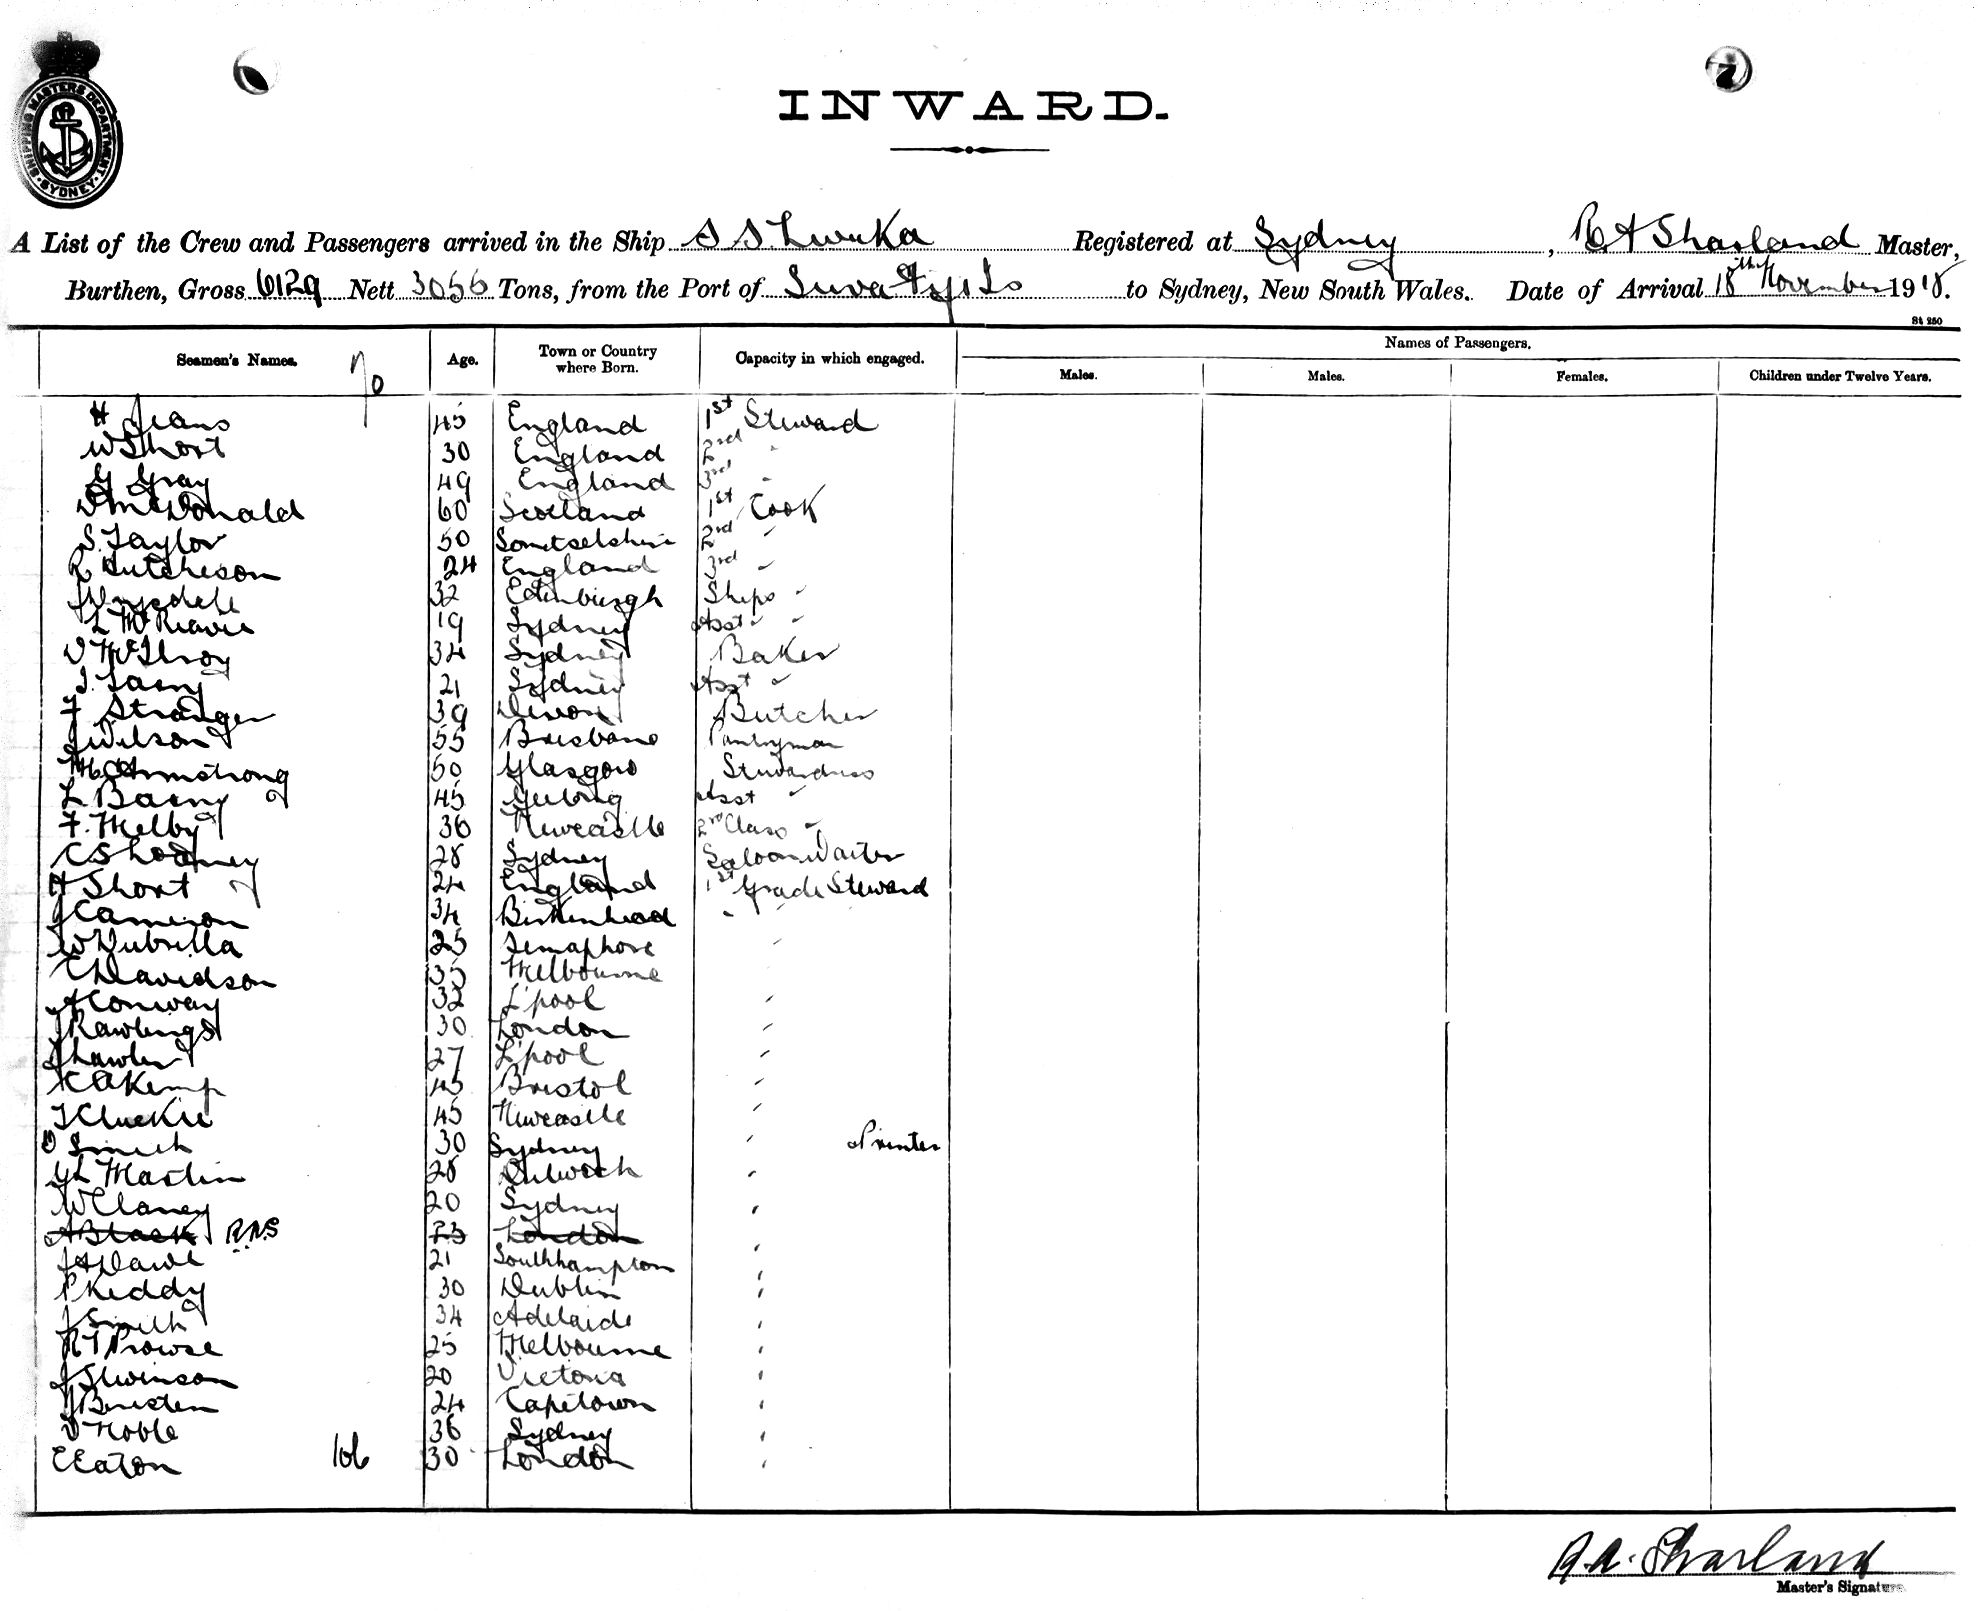 SHIPPING MASTERS DEPARTMENT
SYDNEY
7
INWARD.
A List of the Crew and Passengers arrived in the Ship S S Levuka Registered at Sydney, R A Sharland Master,
Burthen, Gross 6129 Nett 3056 Tons, from the Port of Suva Fiji Is to Sydney, New South Wales. Date of Arrival 18th November 1918.
St 250
Seamen's Names. Age. Town or Country where Born. Capacity in which engaged. Names of Passengers.
Males. Males. Females. Children under Twelve Years.
70
H Jeans 45 England 1st Steward
W Short 30 England 2nd "
G Gray 49 England 3rd "
D McDonald 60 Scotland 1st Cook
S. Taylor 50 2nd "
R Hutcheson 24 England 3rd "
32 Edinburgh Ships "
L McReavie 19 Sydney Asst " "
D McIlroy 34 Sydney Baker
21 Sydney Asst "
F Stranger 39 Devon Butcher
J Wilson 55 Brisbane Pantryman
Armstrong 50 Glasgow Stewardess
L Barry 45 Geelong Asst "
F. Melby 36 Newcastle 2nd Class "
28 Sydney Saloon Waiter
A Short 24 England 1st Grade Steward
J Cameron 34 Birkenhead " "
W Dubrilla 25 Semaphore "
C Davidson 35 Melbourne
A Conway 32 L'pool "
J Rawlings 30 London "
J Lawler 27 L'pool "
Kemp 45 Bristol "
T Cluckie 45 Newcastle "
O Smith 30 Sydney " Printer
G L Martin 28 Dulwich "
W Clancy 20 Sydney "
A Black R.N.S 23 London
J A Dawe 21 Southhampton "
P Keddy 30 Dublin "
J Smith 34 Adelaide "
R T Prowse 25 Melbourne "
J Swinson 20 Victoria "
J 24 Capetown "
D Noble 36 Sydney "
E Eaton 106 30 London "
R. A. Sharland
Master's Signature.